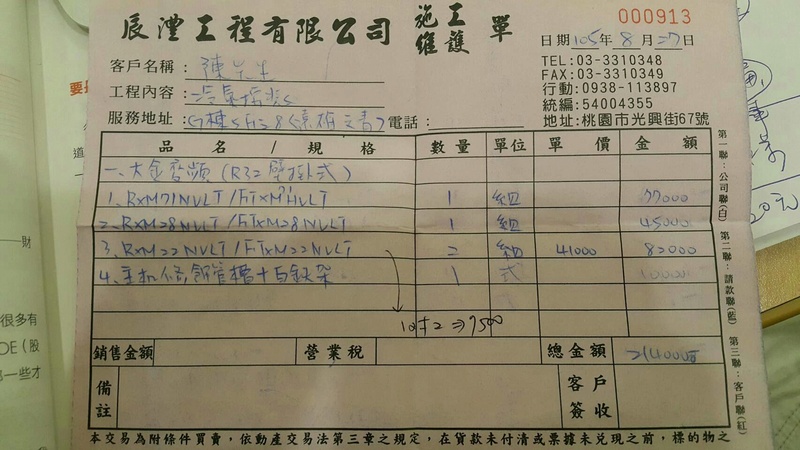 000913
辰澧工程有限公司 施工維護 單
日期 105年 8 月 27日
TEL:03-3310348
FAX:03-3310349
行動:0938-113897
統編:54004355
地址:桃園市光興街67號
客戶名稱: 陳先生
工程內容:
服務地址: 電話:
品 名 / 規 格 數量 單位 單 價 金 額
一、大金變頻 (R32壁掛式)
1. RXM71NVLT/FTXM71NVLT 1 組 77000
2. RXM28NVLT/FTXM28NVLT 1 組 45000
3. RXM22NVLT/FTXM22NVLT 2 組 41000 82000
4. 主机 管槽十白鉄架 1 式 10000
⇒7500
銷售金額 營業稅 總金額 214000
備註 客戶簽收
本交易為附條件買賣，依動產交易法第三章之規定，在貨款未付清或票據未兌現之前，標的物之
第一聯：公司聯(白) 第二聯：請款聯(藍) 第三聯：客戶聯(紅)
財
很多有
OE（股
一些才
20元